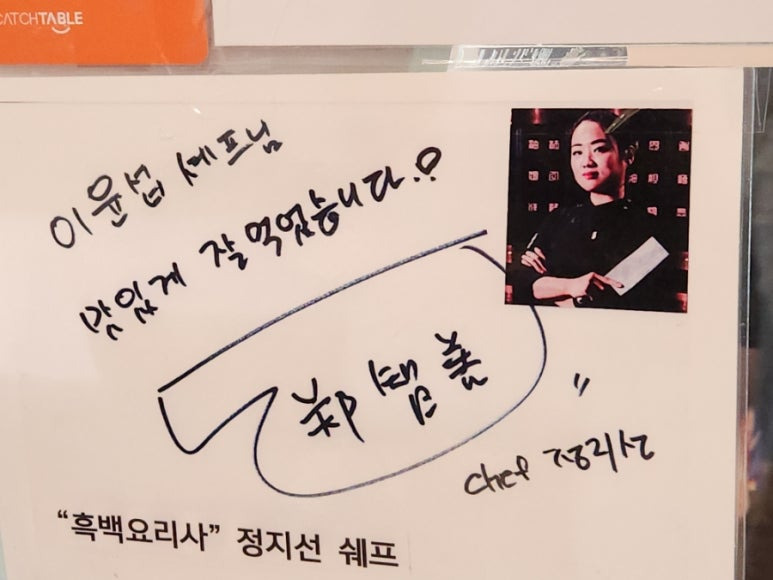 CATCHTABLE
이윤섭 셰프님
맛있게 잘 먹었습니다.!
郑智善
"
Chef 정지선
“흑백요리사” 정지선 쉐프